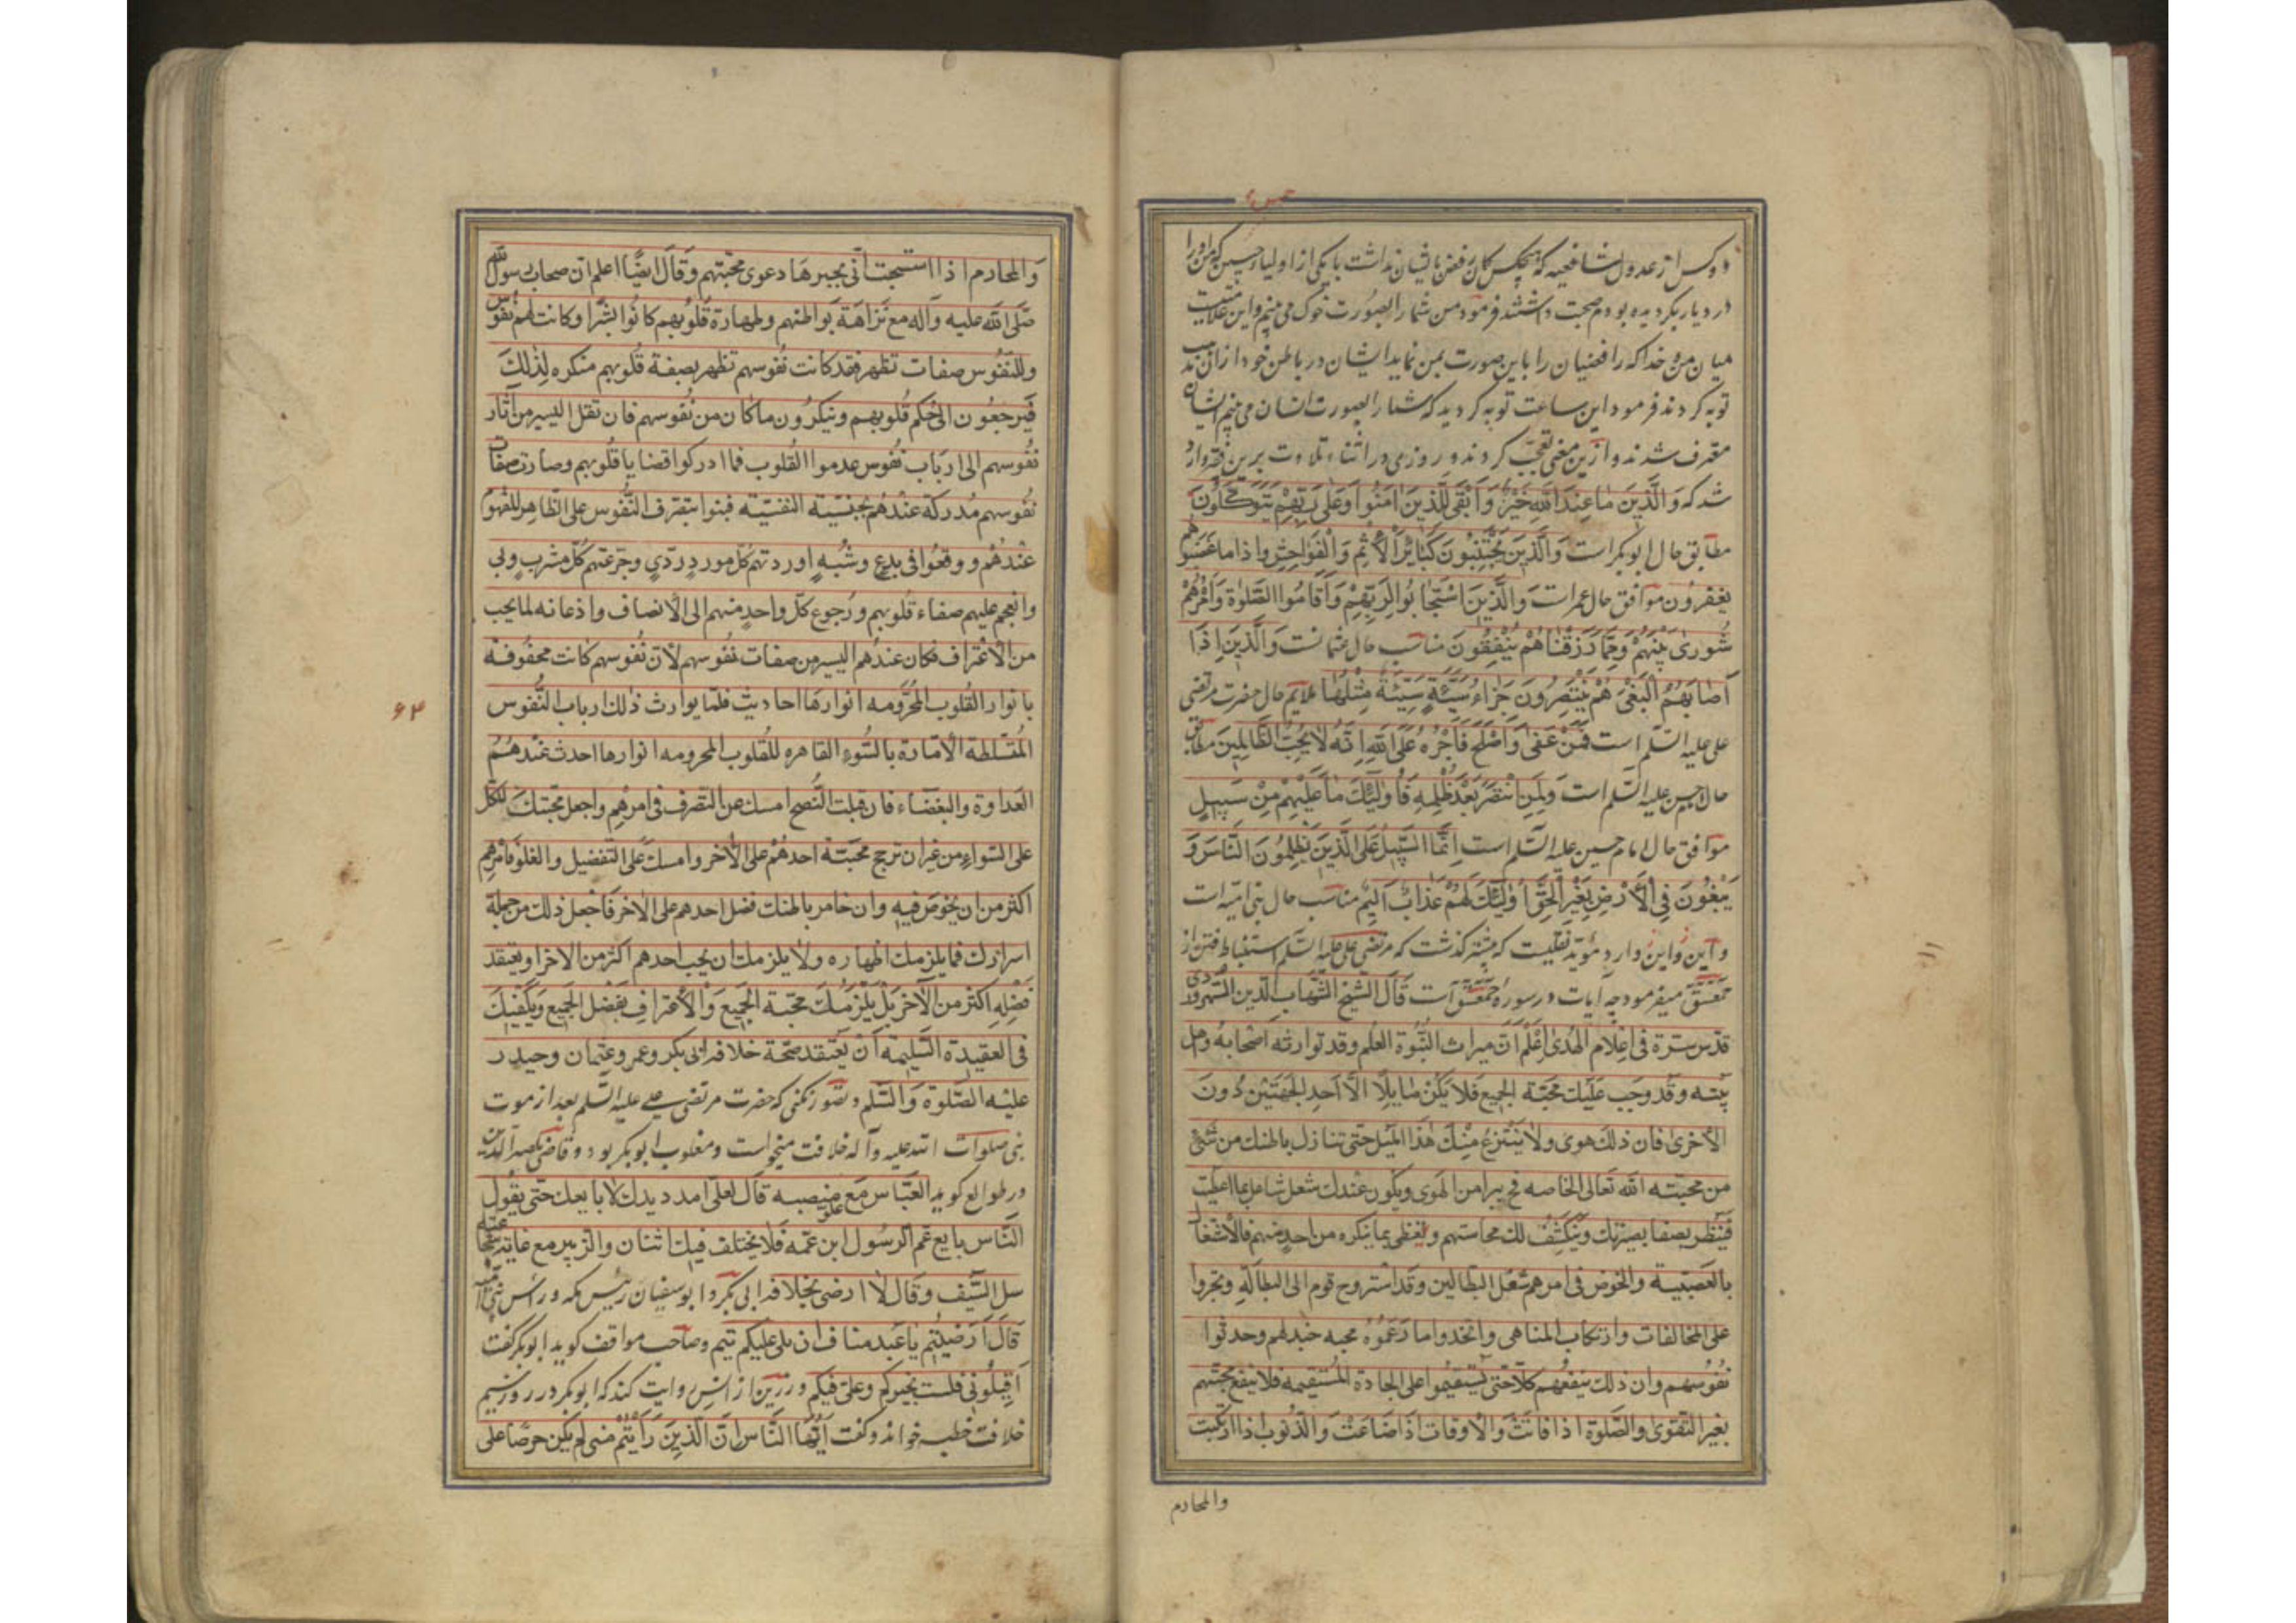 دو کس از عدول شافعیه که هیچکس گمان رفض بایشان نداشت با یکی از اولیاء
در دیار بکر دیده بودم صحبت داشتند فرمود من شما را بصورت خوک می بینم و این علامتیست
میان من و خدا که رافضیان را باین صورت بمن نماید ایشان در باطن خود از آن مذهب
توبه کردند فرمود این ساعت توبه کردید که شما را بصورت انسان می بینم ایشان
معترف شدند و ازین معنی تعجب کردند و روزی در اثناء تلاوت برین فقیر وارد
شد که وَالَّذِینَ مَا عِندَ اللهِ خَیْرٌ وَأَبْقَی لِلَّذِینَ آمَنُوا وَعَلَی رَبِّهِمْ یَتَوَکَّلُونَ
مطابق حال ابو بکر است وَالَّذِینَ یَجْتَنِبُونَ کَبَائِرَ الْأِثْمِ وَالْفَوَاحِشَ وَإِذَا مَا غَضِبُوا هُمْ
یغفرون موافق حال عمر است وَالَّذِینَ اسْتَجَابُوا لِرَبِّهِمْ وَأَقَامُوا الصَّلٰوةَ وَأَمْرُهُمْ
شُورَی بَیْنَهُمْ وَمِمَّا رَزَقْنَاهُمْ یُنْفِقُونَ مناسب حال عثمانست وَالَّذِینَ إِذَا
أَصَابَهُمُ الْبَغْیُ هُمْ یَنْتَصِرُونَ جَزَاءُ سَیِّئَةٍ سَیِّئَةٌ مِثْلُهَا ملایم حال حضرت مرتضی
علی علیه السّلم است فَمَنْ عَفَی وَأَصْلَحَ فَأَجْرُهُ عَلَی اللهِ إِنَّهُ لَا یُحِبُّ الظَّالِمِینَ مطابق
حال حسن علیه السّلم است وَلَمَنِ انْتَصَرَ بَعْدَ ظُلْمِهِ فَأُولٰئِکَ مَا عَلَیْهِمْ مِنْ سَبِیلٍ
موافق حال امام حسین علیه السّلم است إِنَّمَا السَّبِیلُ عَلَی الَّذِینَ یَظْلِمُونَ النَّاسَ وَ
یَبْغُونَ فِی الْأَرْضِ بِغَیْرِ الْحَقِّ أُولٰئِکَ لَهُمْ عَذَابٌ أَلِیمٌ مناسب حال بنی امیّه است
و این وارد مؤید نقلیست که پیشتر گذشت که مرتضی علی علیه السّلم استنباط فتن از
حمعسق میفرمود چه آیات در سوره حمعسق است قال الشیخ الشهاب الدین السهروردی
قدّس سرّه فی اعلام الهدی اعلم انّ میراث النبوّة العلم وقد توارثه اصحابه واهل
بیته وقد وجب علیک محبّة الجمیع فلا یکن مایلا الّا احد الجهتین دون
الأخری فان ذلک هوی ولا ینتزع منک هذا المیل حتی تنازل باطنک من شیء
من محبّته الله تعالی الخاصه فح یبرا من الهوی ویکون عندک شغل شاغل بما اعطیت
فینظر بصفا بصیرتک وینکشف لک محاسنهم ویغطی بما ینکره من احدٍ منهم فالاشتغال
بالعصبیّة والخوض فی امرهم شغل البطالین وقد استروح قوم الی البطالة وتجروا
علی المخالفات وارتکاب المناهی واتخذوا ما زعموه محبه خبد لهم وحدثوا
نفوسهم وان ذلک ینفعهم کلّا حتی یستقیموا علی الجادة المستقیمه فلا ینفع محبّتهم
بغیر التقوی والصّلوة اذا فاتت والأوقات اذا ضاعت والذّنوب اذا ارتکبت
والمحارم
والمحارم اذا استبیحت أنّی یجبرها دعوی محبّتهم وقال ایضا اعلم ان صحاب رسول الله
صلّی الله علیه وآله مع نزاهة بواطنهم وطهارة قلوبهم کانوا بشرا وکانت لهم نفوس
وللنفوس صفات تظهر فقد کانت نفوسهم تظهر بصفة قلوبهم منکره لذلک
فیرجعون الی حکم قلوبهم وینکرون ما کان من نفوسهم فان تقل الیسیر من آثار
نفوسهم الی ارباب نفوس عدموا القلوب فما ادرکوا قضایا قلوبهم وصارت صفات
نفوسهم مدرکة عندهم بجنسیّة النفسیّة فبنوا بتصرف النفوس علی الظاهر للفهوم
عندهم ووقعوا فی بدعٍ وشبهٍ اوردتهم کلّ موردٍ ردّیٍ وجرّعتهم کلّ مشربٍ وبی
وانعجم علیهم صفاء قلوبهم ورجوع کلّ واحدٍ منهم الی الأنصاف واذعانه لما یجب
من الأعتراف فکان عندهم الیسیر من صفات نفوسهم لأن نفوسهم کانت محفوفة
بانوار القلوب المحرومه انوارها احادیث فلمّا یوارث ذلک ارباب النّفوس
المتسلطة الأمّارة بالسّوء القاهره للقلوب المحرومه انوارها احدث عندهم
العداوة والبغضاء فان قبلت النّصح امسک عن التصرف فی امرهم واجعل محبّتک للکلّ
علی السّواء من غیر ان ترجح محبّة احدهم علی الأخر وامسک علی التفضیل والغلوّ فامرهم
اکثر من ان یخوض فیه وان خامر باطنک فضل احدهم علی الأخر فاجعل ذلک من جملة
اسرارک فما یلزمک اظهاره ولا یلزمک ان یحب احدهم اکثر من الاخر او یعتقد
فضله اکثر من الآخر بل یلزمک محبّة الجمیع والاعتراف بفضل الجمیع ویکفیک
فی العقیدة السّلیمة ان یعتقد صحّة خلافة ابی بکر وعمر وعثمان وحیدر
علیه الصّلوة والسّلم و تصوّر نکنی که حضرت مرتضی علی علیه السّلم بعد از موت
نبی صلوات الله علیه وآله خلافت میخواست ومغلوب ابو بکر بود وقاضی نصیر الدین
در طوالع گوید العبّاس مع علو منصبه قال لعلیّ امدد یدک لأبایعک حتی یقول
النّاس بایع عمّ الرسول ابن عمّه فلا یختلف فیک اثنان والزبیر مع غایة شجاعته
سل السّیف وقال لا ارضی بخلافة ابی بکر وابو سفیان رئیس مکه ورأس بنی امیّه
قال أرضیتم یا عبد مناف ان یلی علیکم تیم وصاحب مواقف گوید ابو بکر گفت
اقیلونی فلست بخیرکم وعلیّ فیکم ورزین از انس روایت کند که ابو بکر در روز نسیم
خلافت خطبه خواند و گفت ایّها النّاس انّ الّذین رأیتم منی لم یکن حرصا علی
۶۳